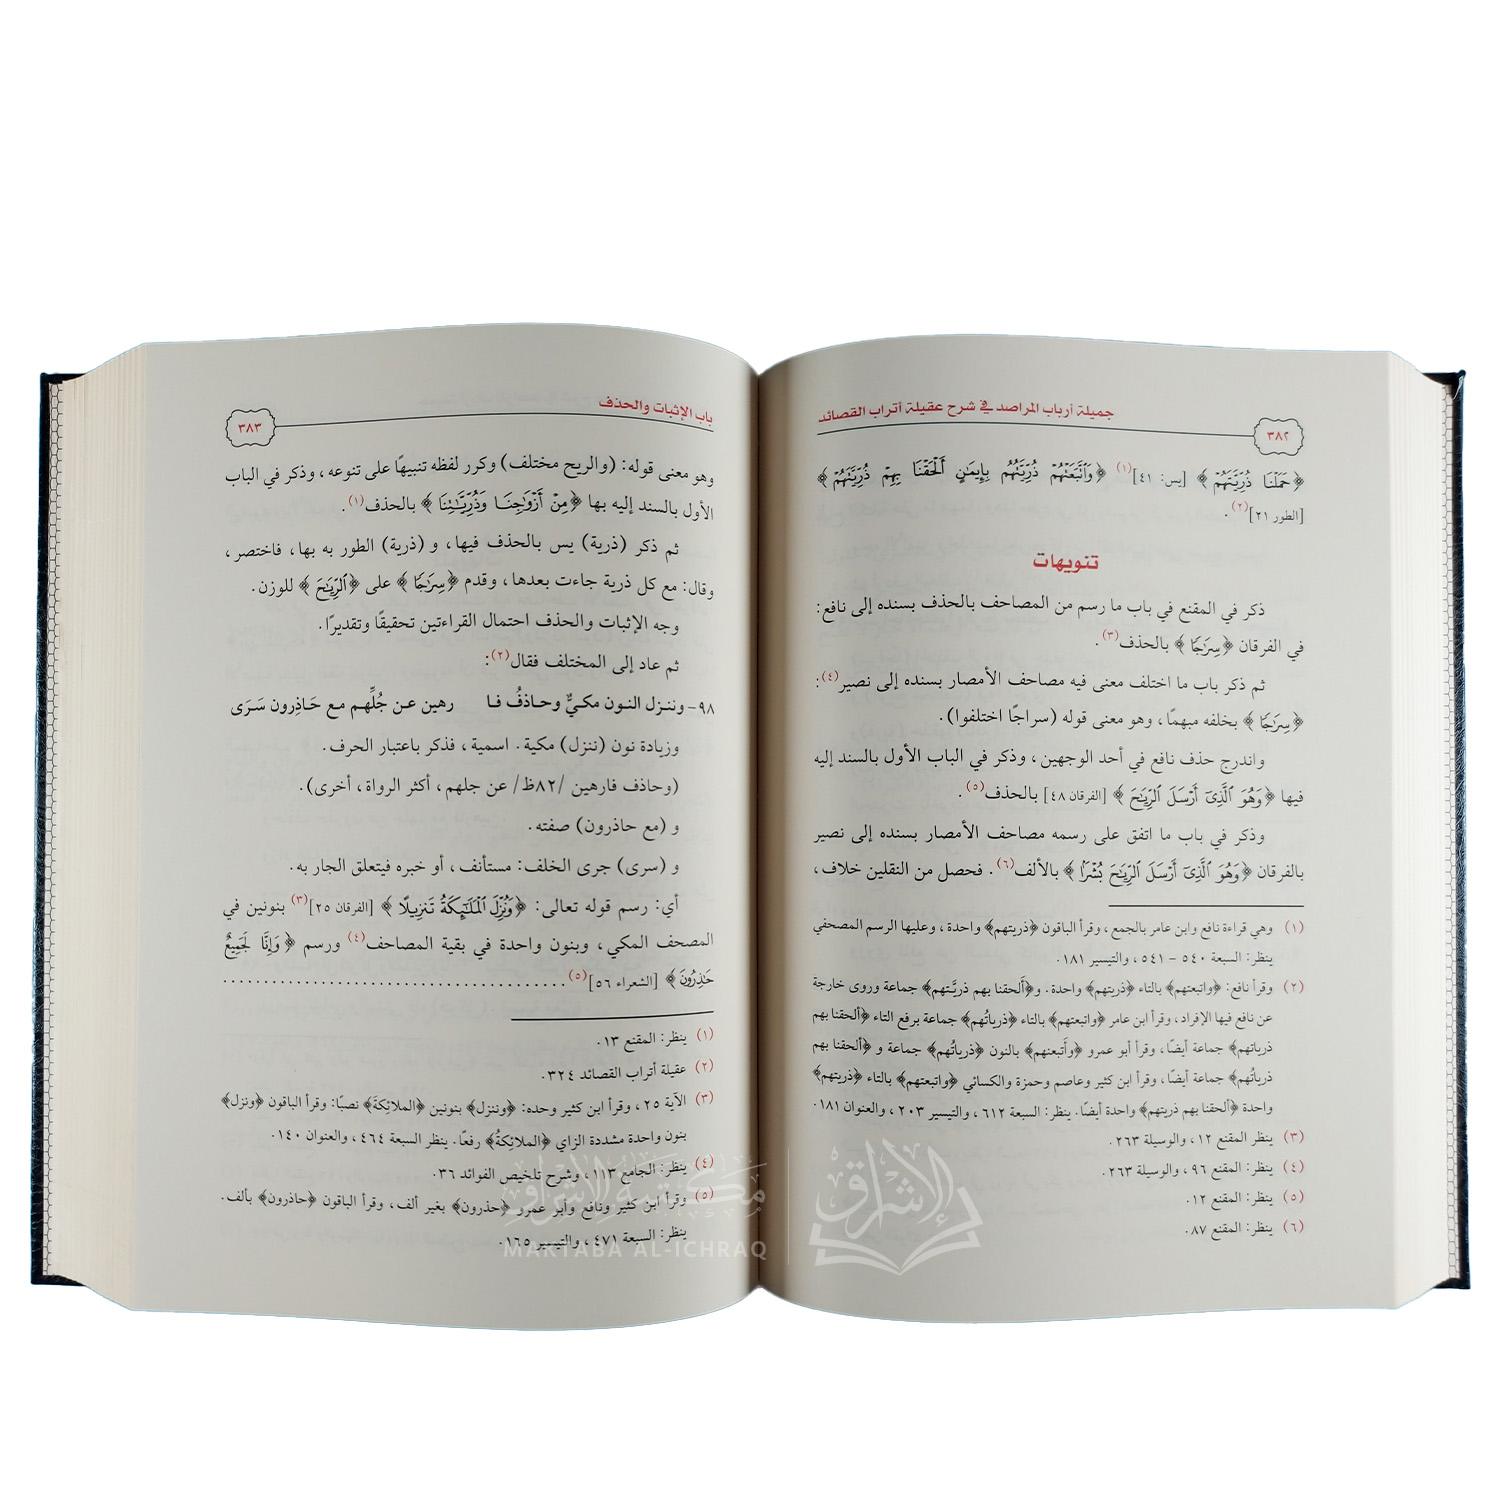 جميلة أرباب المراصد في شرح عقيلة أتراب القصائد
٣٨٢
﴿حَمَلْنَا ذُرِّيَّتَهُمْ﴾ [يس: ٤١](١) ﴿وَاتَّبَعَتْهُمْ ذُرِّيَّتُهُم بِإِيمَانٍ أَلْحَقْنَا بِهِمْ ذُرِّيَّتَهُمْ﴾
[الطور ٢١](٢).
تنويهات
ذكر في المقنع في باب ما رسم من المصاحف بالحذف بسنده إلى نافع:
في الفرقان ﴿سِرَٰجًا﴾ بالحذف(٣).
ثم ذكر باب ما اختلف معنى فيه مصاحف الأمصار بسنده إلى نصير(٤):
﴿سِرَٰجًا﴾ بخلفه مبهمًا، وهو معنى قوله (سراجًا اختلفوا).
واندرج حذف نافع في أحد الوجهين، وذكر في الباب الأول بالسند إليه
فيها ﴿وَهُوَ ٱلَّذِىٓ أَرْسَلَ ٱلرِّيَٰحَ﴾ [الفرقان ٤٨] بالحذف(٥).
وذكر في باب ما اتفق على رسمه مصاحف الأمصار بسنده إلى نصير
بالفرقان ﴿وَهُوَ ٱلَّذِىٓ أَرْسَلَ ٱلرِّيَٰحَ بُشْرًا﴾ بالألف(٦). فحصل من النقلين خلاف،
(١) وهي قراءة نافع وابن عامر بالجمع، وقرأ الباقون ﴿ذريتهم﴾ واحدة، وعليها الرسم المصحفي
ينظر: السبعة ٥٤٠ - ٥٤١، والتيسير ١٨١.
(٢) وقرأ نافع: ﴿واتبعتهم﴾ بالتاء ﴿ذريتهم﴾ واحدة. و﴿ألحقنا بهم ذريَّتهم﴾ جماعة وروى خارجة
عن نافع فيها الإفراد، وقرأ ابن عامر ﴿واتبعتهم﴾ بالتاء ﴿ذرياتُهم﴾ جماعة برفع التاء ﴿ألحقنا بهم
ذرياتهم﴾ جماعة أيضًا، وقرأ أبو عمرو ﴿وأتبعنهم﴾ بالنون ﴿ذرياتُهم﴾ جماعة و ﴿ألحقنا بهم
ذرياتُهم﴾ جماعة أيضًا، وقرأ ابن كثير وعاصم وحمزة والكسائي ﴿واتبعتهم﴾ بالتاء ﴿ذريتهم﴾
واحدة ﴿ألحقنا بهم ذريتهم﴾ واحدة أيضًا. ينظر: السبعة ٦١٢، والتيسير ٢٠٣، والعنوان ١٨١.
(٣) ينظر المقنع ١٢، والوسيلة ٢٦٣.
(٤) ينظر: المقنع ٩٦، والوسيلة ٢٦٣.
(٥) ينظر: المقنع ١٢.
(٦) ينظر: المقنع ٨٧.
باب الإثبات والحذف
٣٨٣
وهو معنى قوله: (والريح مختلف) وكرر لفظه تنبيهًا على تنوعه، وذكر في الباب
الأول بالسند إليه بها ﴿مِنْ أَزْوَٰجِنَا وَذُرِّيَّٰتِنَا﴾ بالحذف(١).
ثم ذكر (ذرية) يس بالحذف فيها، و (ذرية) الطور به بها، فاختصر،
وقال: مع كل ذرية جاءت بعدها، وقدم ﴿سِرَٰجًا﴾ على ﴿ٱلرِّيَٰحَ﴾ للوزن.
وجه الإثبات والحذف احتمال القراءتين تحقيقًا وتقديرًا.
ثم عاد إلى المختلف فقال(٢):
٩٨- وننـزل النـون مكـيٌّ وحـاذفُ فـا رهين عـن جُلِّهـم مـع حَـاذِرون سَـرَى
وزيادة نون (ننزل) مكية. اسمية، فذكر باعتبار الحرف.
(وحاذف فارهين /٨٢ظ/ عن جلهم، أكثر الرواة، أخرى).
و (مع حاذرون) صفته.
و (سرى) جرى الخلف: مستأنف، أو خبره فيتعلق الجار به.
أي: رسم قوله تعالى: ﴿وَنُزِّلَ ٱلْمَلَٰٓئِكَةُ تَنزِيلًا﴾ [الفرقان ٢٥](٣) بنونين في
المصحف المكي، وبنون واحدة في بقية المصاحف(٤) ورسم ﴿وَإِنَّا لَجَمِيعٌ
حَٰذِرُونَ﴾ [الشعراء ٥٦](٥) ........................................
(١) ينظر: المقنع ١٣.
(٢) عقيلة أتراب القصائد ٣٢٤.
(٣) الآية ٢٥، وقرأ ابن كثير وحده: ﴿وننزل﴾ بنونين ﴿الملائِكةَ﴾ نصبًا: وقرأ الباقون ﴿ونزل﴾
بنون واحدة مشددة الزاي ﴿الملائِكةُ﴾ رفعًا. ينظر السبعة ٤٦٤، والعنوان ١٤٠.
(٤) ينظر: الجامع ١١٣، وشرح تلخيص الفوائد ٣٦.
(٥) وقرأ ابن كثير ونافع وأبو عمرو ﴿حذرون﴾ بغير ألف، وقرأ الباقون ﴿حاذرون﴾ بألف.
ينظر: السبعة ٤٧١، والتيسير ١٦٥.
مكتبة الإشراق
MAKTABA AL-ICHRAQ
الإشراق